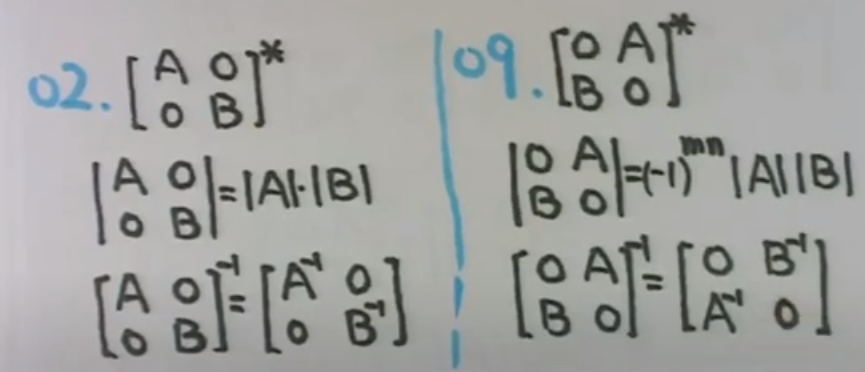 02. [A O; O B]*
|A O; O B| = |A|·|B|
[A O; O B]⁻¹ = [A⁻¹ O; O B⁻¹]
09. [O A; B O]*
|O A; B O| = (-1)ᵐⁿ |A| |B|
[O A; B O]⁻¹ = [O B⁻¹; A⁻¹ O]